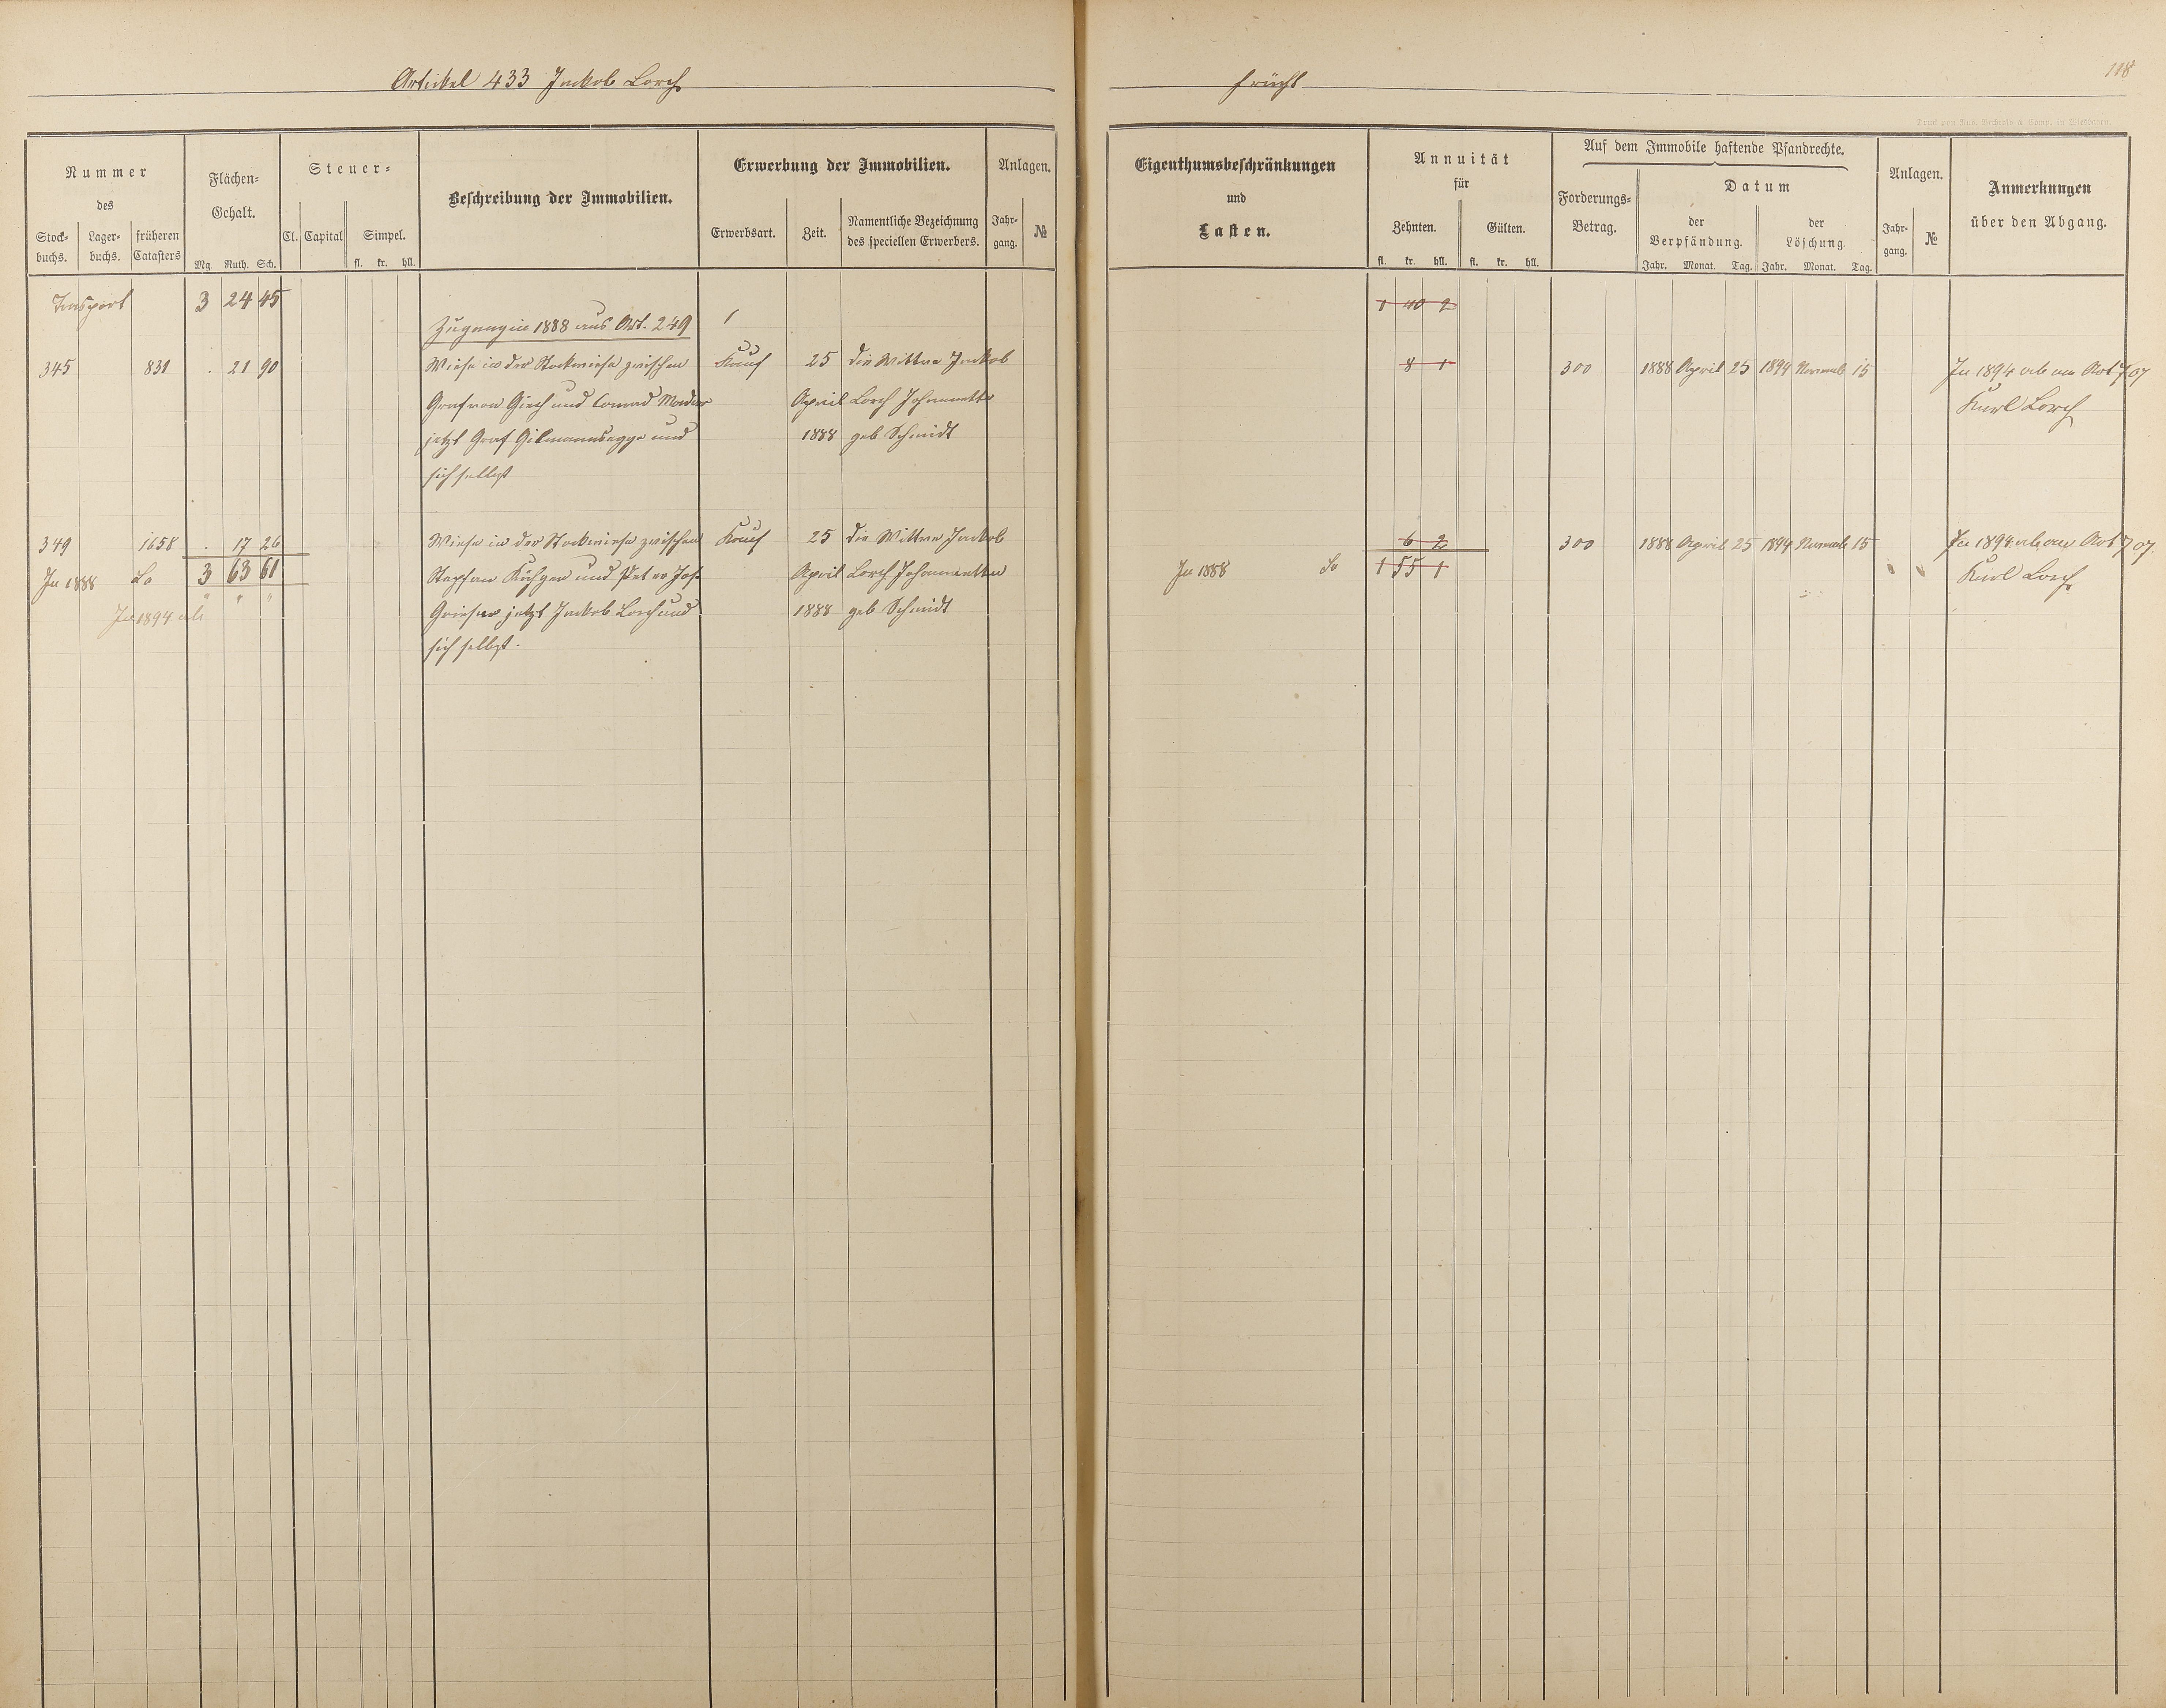 Artickel 433 Jackob Lorch
Frücht
118
Druck von Rud. Bechtold & Comp. in Wiesbaden.
Nummer
des
Stock-
buchs.
Lager-
buchs.
früheren
Catasters
Flächen-
Gehalt.
Mg. Ruth. Sch.
Steuer-
Cl. Capital Simpel.
fl. kr. hll.
Beschreibung der Immobilien.
Erwerbung der Immobilien.
Erwerbsart.
Zeit.
Namentliche Bezeichnung
des speciellen Erwerbers.
Anlagen.
Jahr-
gang.
№
Eigenthumsbeschränkungen
und
Lasten.
Annuität
für
Zehnten. Gülten.
fl. kr. hll. fl. kr. hll.
Auf dem Immobile haftende Pfandrechte.
Forderungs-
Betrag.
Datum
der
Verpfändung.
der
Löschung.
Jahr. Monat. Tag. Jahr. Monat. Tag.
Anlagen.
Jahr-
gang.
№
Anmerkungen
über den Abgang.
Transport 3 24 45 1 40 2
Zugang in 1888 aus Art. 249
345 831 . 21 90 Wiese in der Stockwiese zwischen Kauf 25 die Wittwe Jackob 8 1 300 1888 April 25 1894 Novemb 15 In 1894 ab an Art 707
Graf von Giech und Conrad April Lorch Johannette Karl Lorch
jetzt Graf und 1888 geb Schmidt
sich selbst
349 1658 . 17 26 Wiese in der Stockwiese zwischen Kauf 25 die Wittwe Jackob 6 2 300 1888 April 25 1894 Novemb 15 In 1894 ab an Art 707
In 1888 Sa 3 63 61 Stephan und Peter Jost April Lorch Johannette In 1888 Sa 1 55 1 Karl Lorch
In 1894 ab " " " jetzt Jackob Lorch und 1888 geb Schmidt
sich selbst.